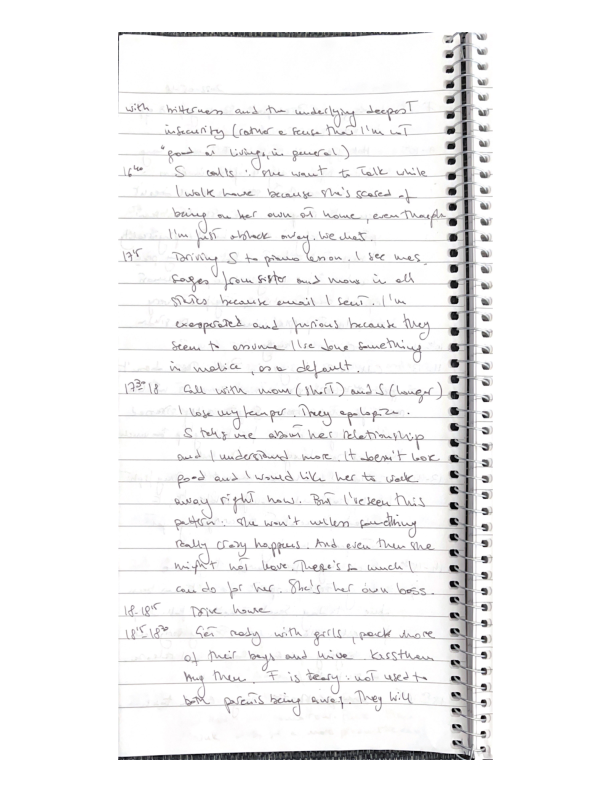 with bitterness and the underlying deepest
insecurity (rather a sense that I'm not
"good at living", in general)
16⁴⁰ S calls: she want to talk while
I walk home because she's scared of
being on her own at home, even though
I'm just a block away. We chat.
17¹⁵ Driving S to piano lesson. I see mes
sages from sister and mom in all
states because email I sent. I'm
exasperated and furious because they
seem to assume I've done something
in malice, as a default.
17³⁰-18 Call with mom (short) and S (longer)
I lose my temper. They apologize.
S tells me about her relationship
and I understand more. It doesn't look
good and I would like her to walk
away right now. But I've seen this
pattern: she won't unless something
really crazy happens. And even then she
might not leave. There's so much I
can do for her. She's her own boss.
18-18¹⁵ Drive home
18¹⁵-18³⁰ Get ready with girls, pack more
of their bags and mine. Kiss them
hug them. F is teary: not used to
both parents being away. They will